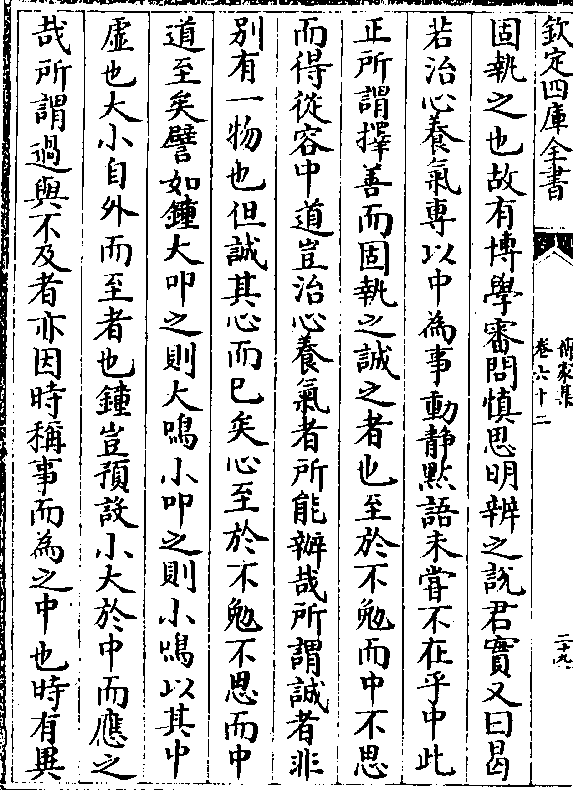 欽定四庫全書
傳家集
卷六十二
二十九
固執之也故有博學審問慎思明辨之說君實又曰曷
若治心養氣專以中為事動静黙語未嘗不在乎中此
正所謂擇善而固執之誠之者也至於不勉而中不思
而得從容中道豈治心養氣者所能辦哉所謂誠者非
别有一物也但誠其心而已矣心至於不勉不思而中
道至矣譬如鐘大叩之則大鳴小叩之則小鳴以其中
虛也大小自外而至者也鐘豈預設小大於中而應之
哉所謂過與不及者亦因時稱事而為之中也時有異